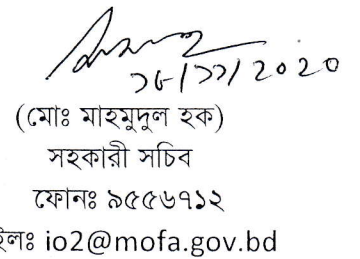 (মোঃ মাহমুদুল হক)
সহকারী সচিব
ফোনঃ ৯৫৫৬৭১২
ইলঃ io2@mofa.gov.bd